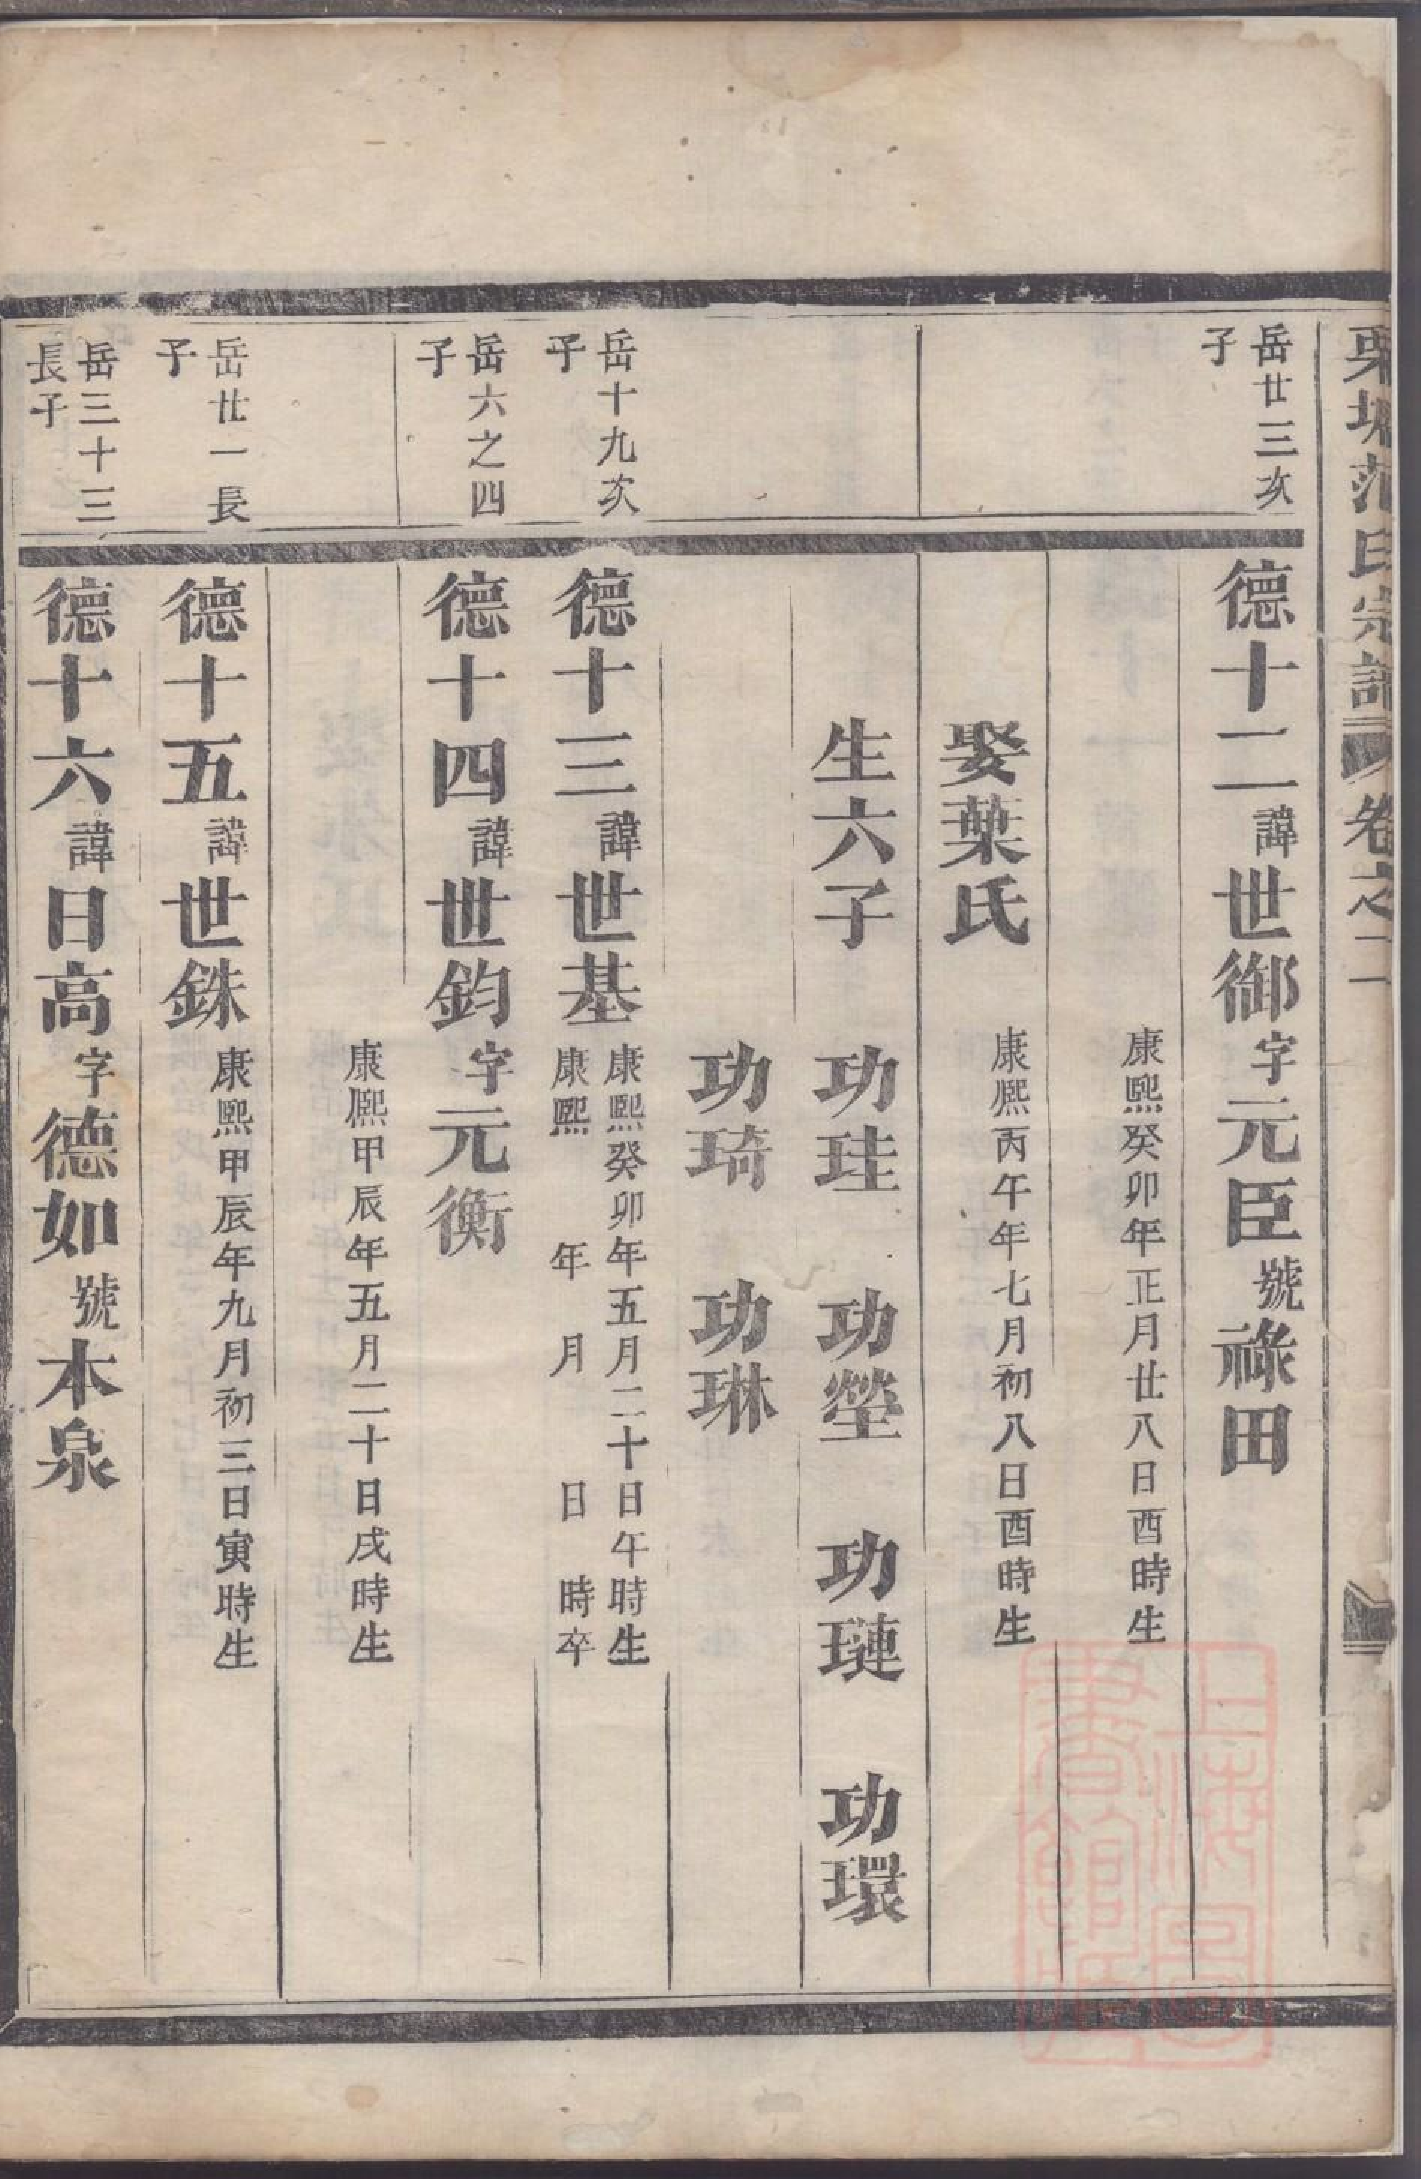 栗塘范氏宗譜 卷之二
岳廿三次子
德十二諱世御字元臣號祿田
康熙癸卯年正月廿八日酉時生
娶葉氏
康熙丙午年七月初八日酉時生
生六子 功珪 功瑩 功璉 功環
功琦 功琳
岳十九次子
德十三諱世基 康熙癸卯年五月二十日午時生
康熙 年 月 日 時卒
岳六之四子
德十四諱世鈞字元衡
康熙甲辰年五月二十日戌時生
岳廿一長子
德十五諱世銖 康熙甲辰年九月初三日寅時生
岳三十三長子
德十六諱日高字德如號本泉
上海圖書館藏